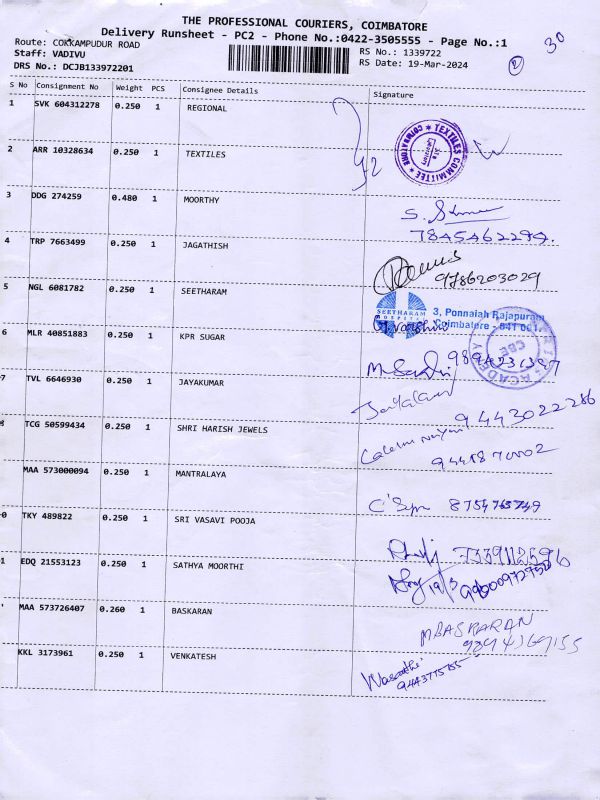 THE PROFESSIONAL COURIERS, COIMBATORE
Delivery Runsheet - PC2 - Phone No.:0422-3505555 - Page No.:1
30
Route: COKKAMPUDUR ROAD
RS No.: 1339722
2
Staff: VADIVU
RS Date: 19-Mar-2024
DRS No.: DCJB133972201
S No Consignment No Weight PCS Consignee Details Signature
1 SVK 604312278 0.250 1 REGIONAL
COIMBATORE * TEXTILES COMMITTEE *
2 ARR 10328634 0.250 1 TEXTILES
3 DDG 274259 0.480 1 MOORTHY
7845462299.
4 TRP 7663499 0.250 1 JAGATHISH
9786203029
5 NGL 6081782 0.250 1 SEETHARAM
SEETHARAM HOSPITAL
3, Ponnaiah Rajapuram
Coimbatore - 641 001.
ACADEMY
CBE
6 MLR 40851883 0.250 1 KPR SUGAR
7 TVL 6646930 0.250 1 JAYAKUMAR
9443022286
8 TCG 50599434 0.250 1 SHRI HARISH JEWELS
MAA 573000094 0.250 1 MANTRALAYA
8754763749
0 TKY 489822 0.250 1 SRI VASAVI POOJA
1 EDQ 21553123 0.250 1 SATHYA MOORTHI
19/3
MAA 573726407 0.260 1 BASKARAN
M BASKARAN
9894369155
KKL 3173961 0.250 1 VENKATESH